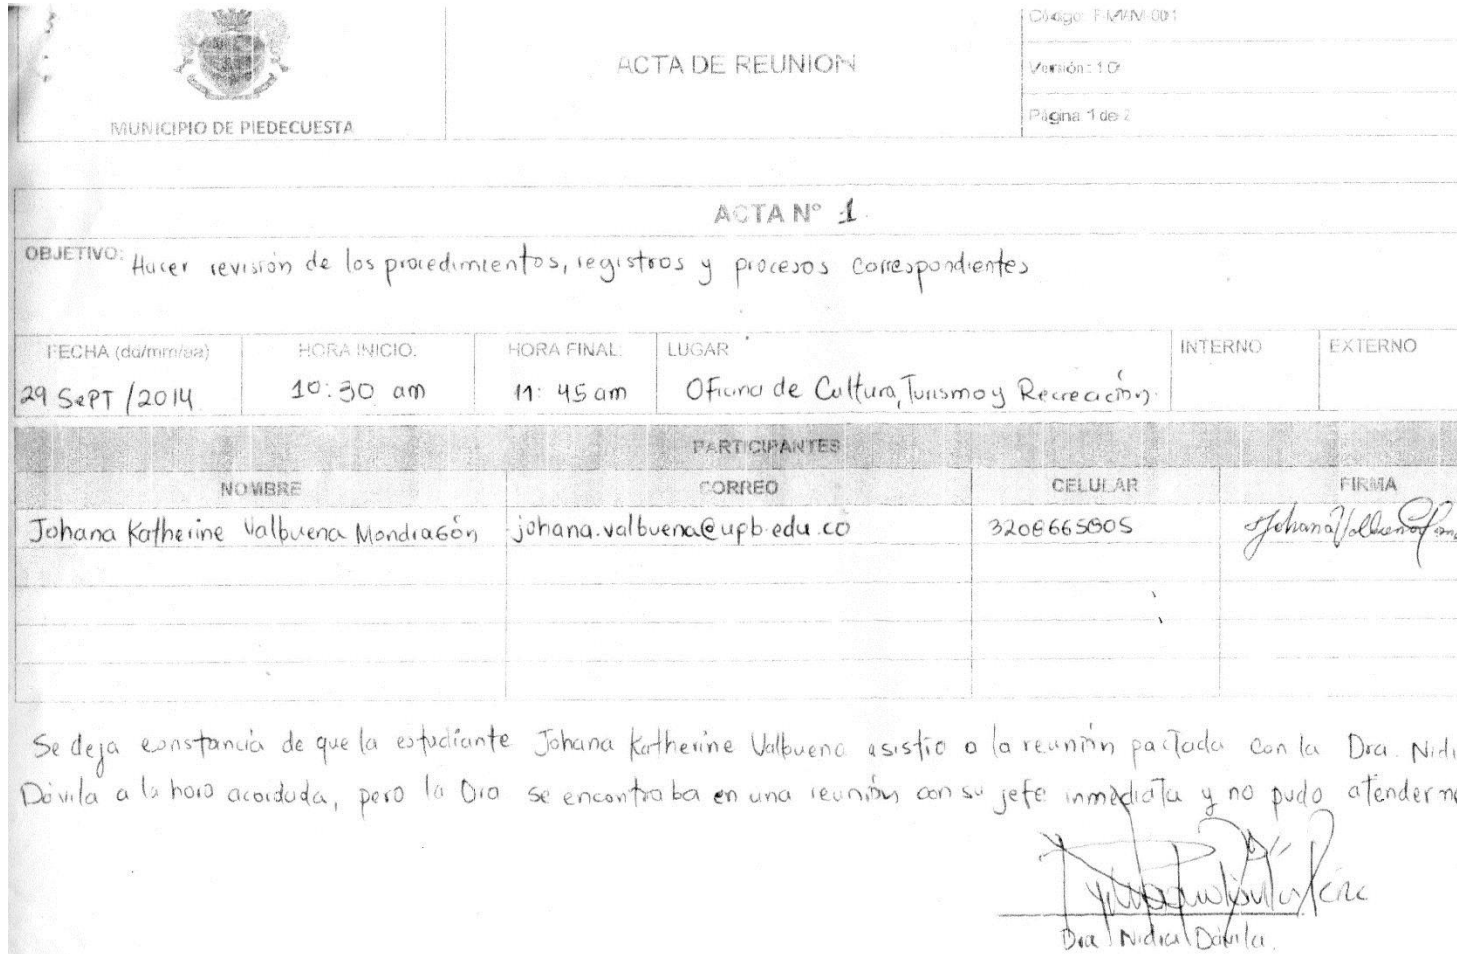 MUNICIPIO DE PIEDECUESTA
ACTA DE REUNION
Código: F-MVM-001
Versión: 1.0
Página 1 de 2
ACTA N° 1
OBJETIVO: Hacer revisión de los procedimientos, registros y procesos correspondientes
FECHA (dd/mm/aa) HORA INICIO: HORA FINAL: LUGAR INTERNO EXTERNO
29 SePT /2014 10:30 am 11:45 am Oficina de Cultura, Turismo y Recreación.
PARTICIPANTES
NOMBRE CORREO CELULAR FIRMA
Johana Katherine Valbuena Mondragón johana.valbuena@upb.edu.co
Se deja constancia de que la estudiante Johana Katherine Valbuena asistio a la reunión pactada con la Dra. Nidi
Dávila a la hora acordada, pero la Dra se encontraba en una reunión con su jefe inmediata y no pudo atenderme
Dra Nidia Dávila.